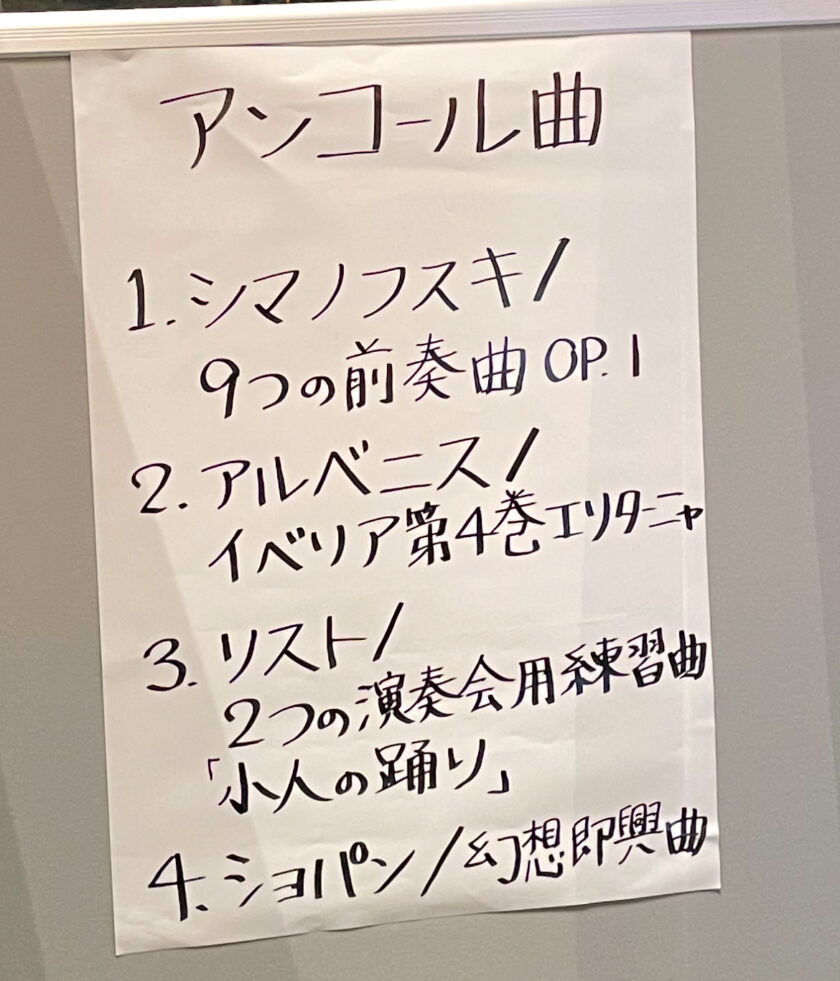 アンコール曲
1. シマノフスキ/
9つの前奏曲 OP. 1
2. アルベニス/
イベリア第4巻エリターニャ
3. リスト/
2つの演奏会用練習曲
「小人の踊り」
4. ショパン/幻想即興曲